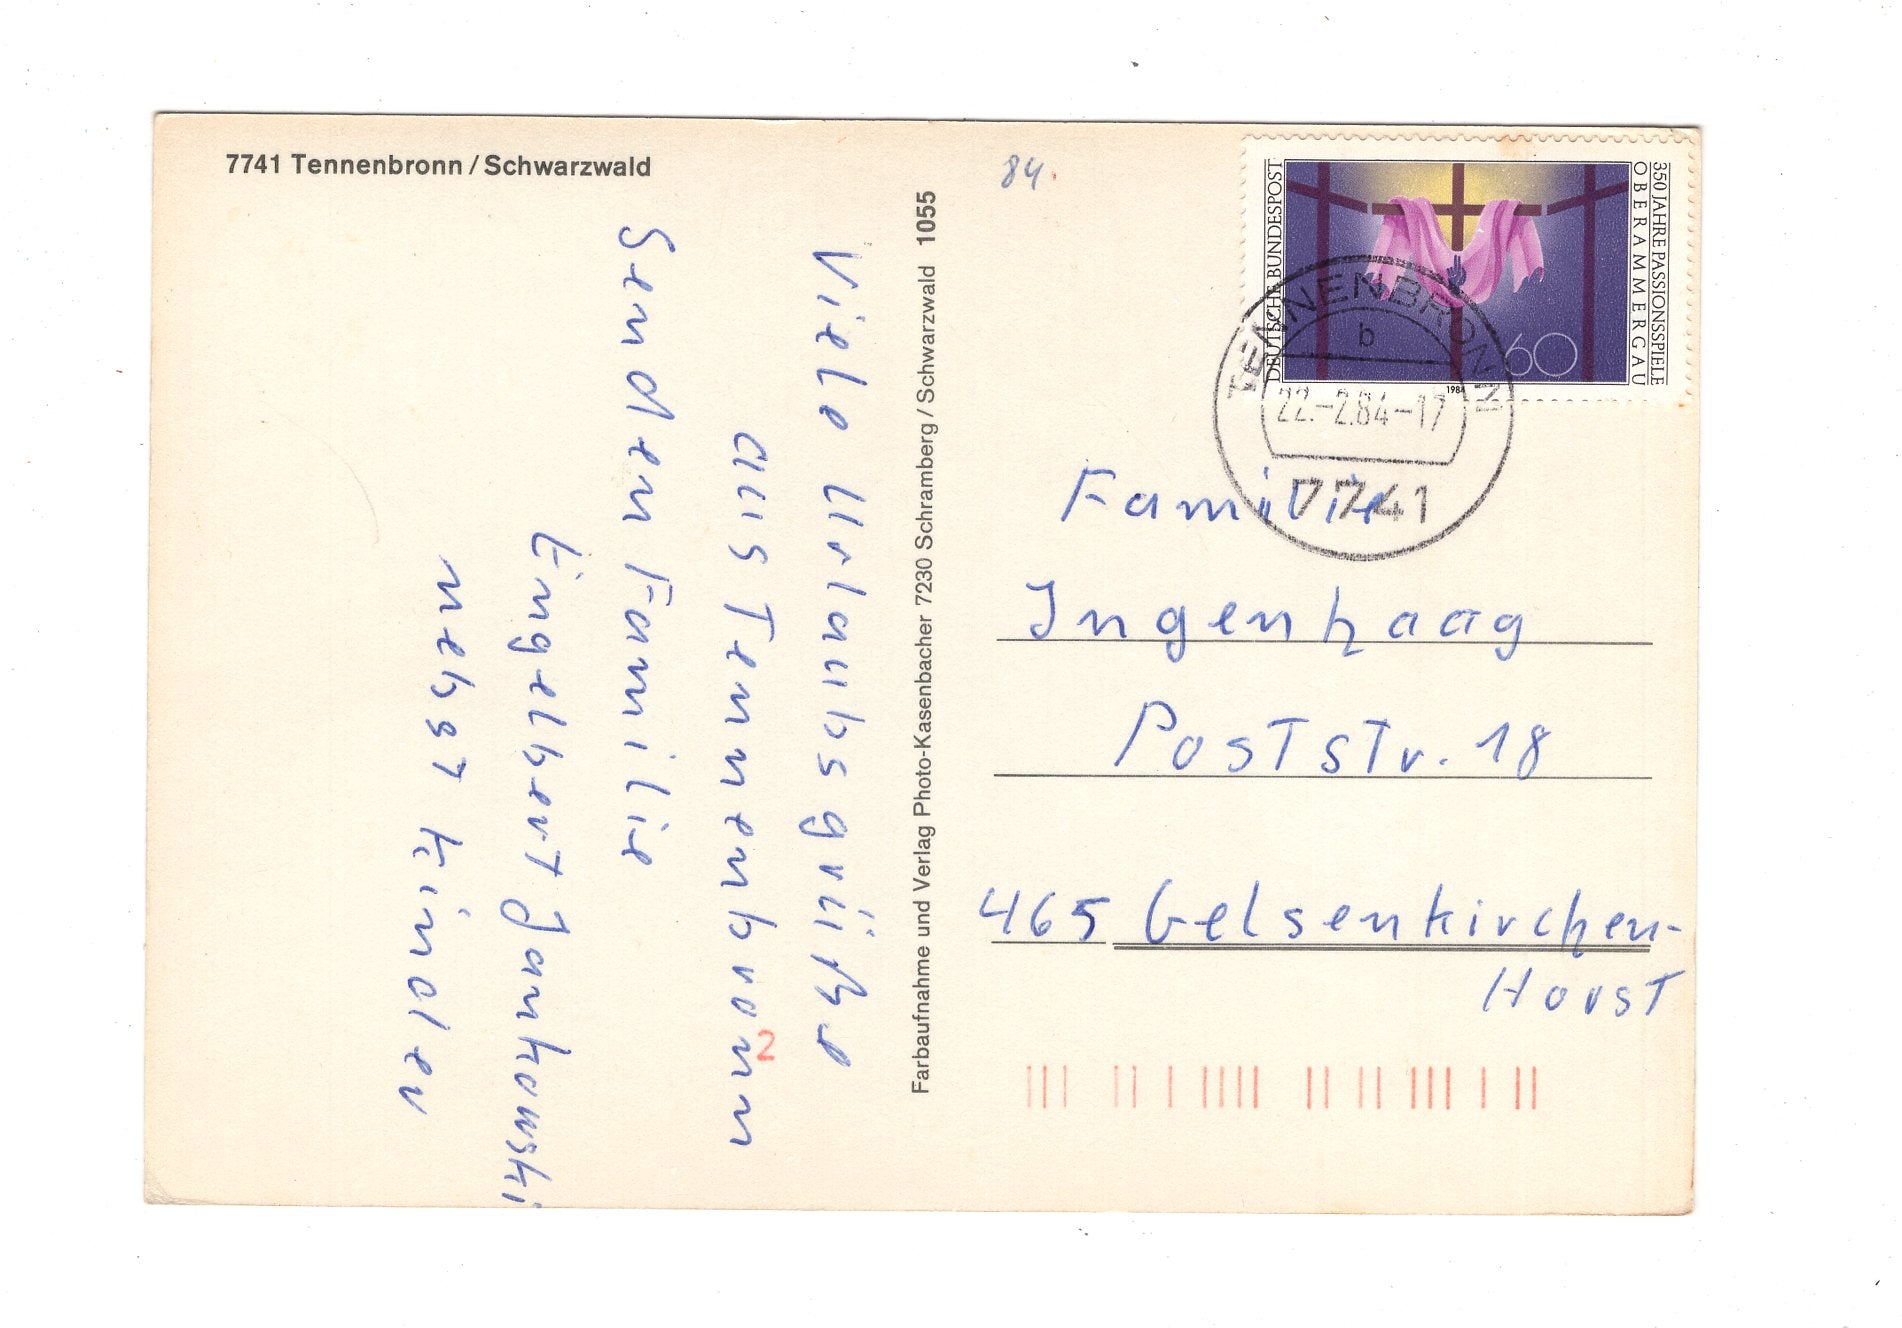 7741 Tennenbronn / Schwarzwald
Viele Urlaubsgrüße
aus Tennenbronn
Senden Familie
Engelbert Jankowski
nebst Kinder
Farbaufnahme und Verlag Photo-Kasenbacher 7230 Schramberg / Schwarzwald 1055
84.
DEUTSCHE BUNDESPOST
350 JAHRE PASSIONSSPIELE
OBERAMMERGAU
60
1984
TENNENBRONN
b
22.-2.84-17
7741
Familie
Ingenhaag
Poststr. 18
465 Gelsenkirchen-
Horst
2